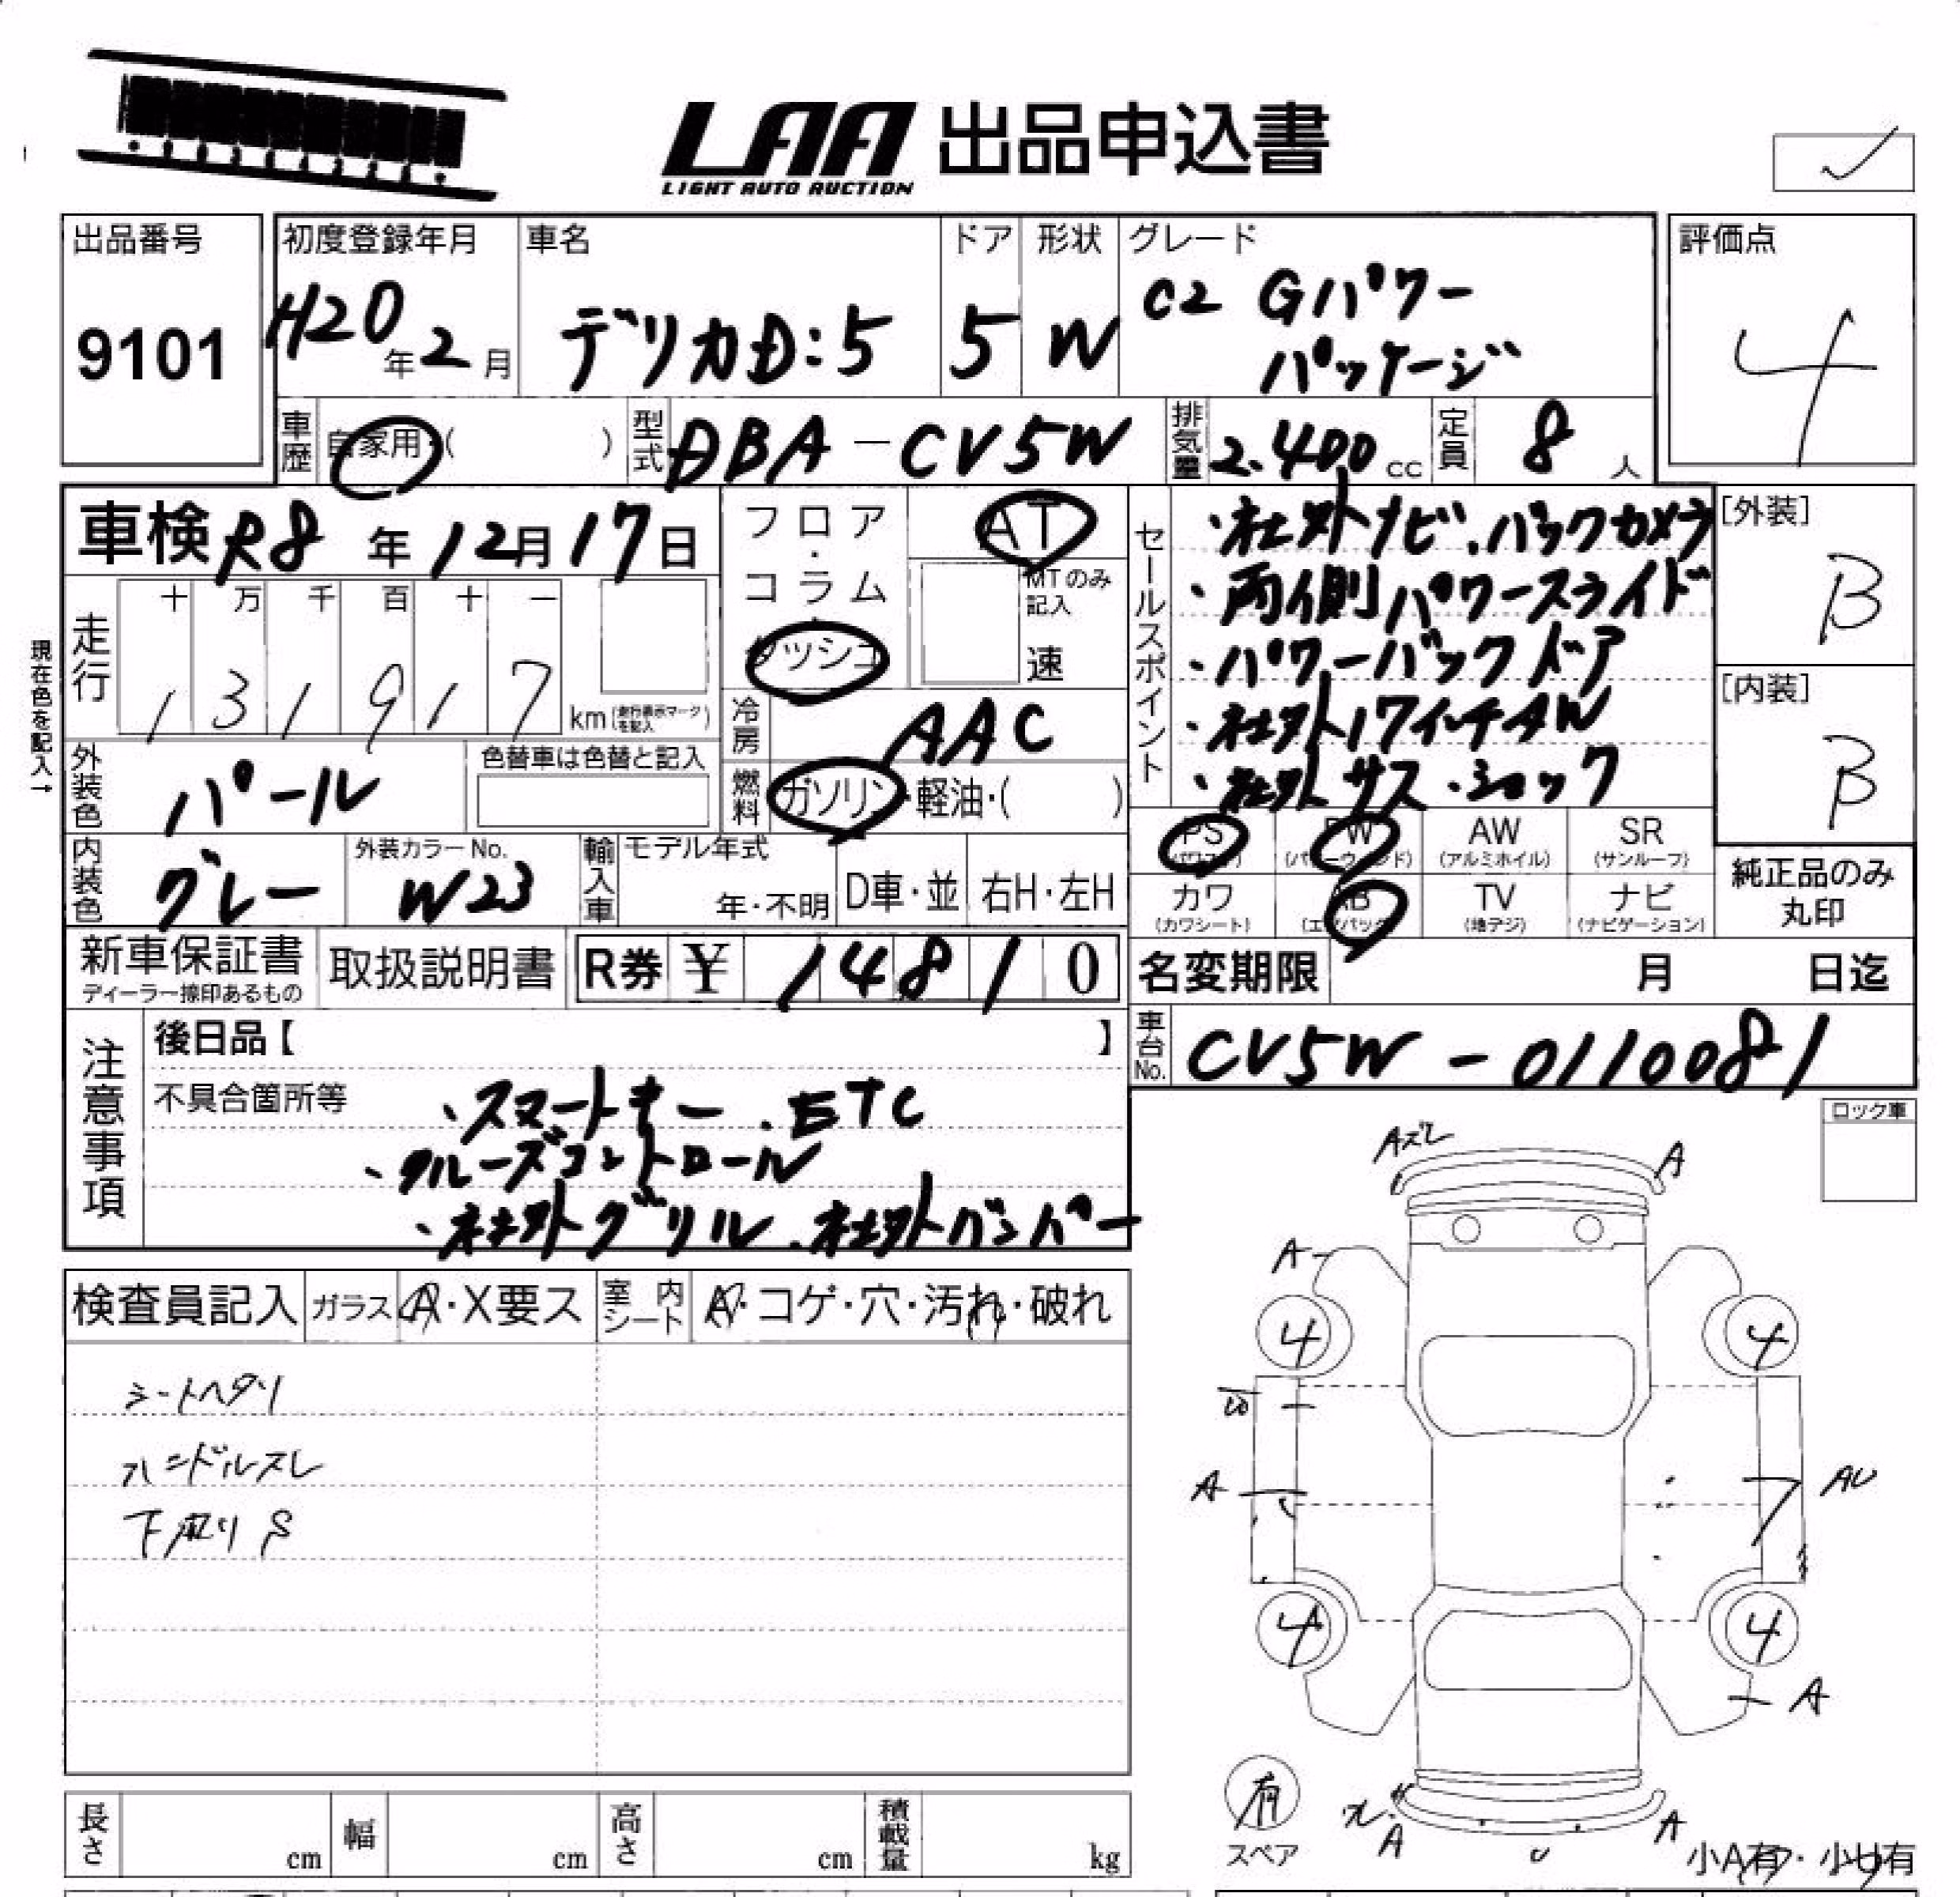 LAA 出品申込書
LIGHT AUTO AUCTION
出品番号 初度登録年月 車名 ドア 形状 グレード 評価点
9101 H20年2月 デリカD:5 5 W C2 Gパワー
パッケージ
4
車歴 自家用・( ) 型式 DBA-CV5W 排気量 2.400cc 定員 8人
車検 R8年12月17日
フロア・コラム・ダッシュ
AT
MTのみ記入
速
セールスポイント
・社外ナビ、バックカメラ
・両側パワースライド
・パワーバックドア
・社外17インチAW
・社外サス・ショック
[外装]
B
[内装]
B
現在色を記入→
走行 十 万 千 百 十 一
131917 km (走行表示マークを記入)
冷房 AAC
外装色 パール 色替車は色替と記入
燃料 ガソリン・軽油・( )
PS PW AW SR
(パワステ) (パワーウィンド) (アルミホイル) (サンルーフ)
カワ AB TV ナビ
(カワシート) (エアバック) (地デジ) (ナビゲーション)
純正品のみ
丸印
内装色 グレー 外装カラーNo. W23 輸入車 モデル年式 年・不明 D車・並 右H・左H
新車保証書 取扱説明書 R券 ¥ 14810
ディーラー捺印あるもの
名変期限 月 日迄
車台No. CV5W-0110081
注意事項
後日品【 】
不具合箇所等
、スマートキー、ETC
、クルーズコントロール
、社外グリル、社外バンパー
ロック車
検査員記入 ガラス A・X要ス 室内シート A・コゲ・穴・汚れ・破れ
シートヘタリ
ハンドルスレ
下廻りS
Aズレ A
A
4 4
A AU
4 4
A
有
スペア
A U A
小A有・小U有
長さ cm 幅 cm 高さ cm 積載量 kg